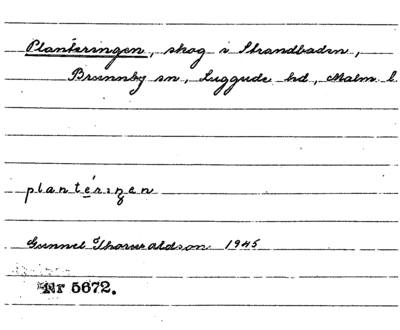 Planteringen, skog i Strandbaden,
Brunnby sn, Luggude hd, Malm. l.
plantérıŋen
Gunnel Thorvaldson 1945
Nr 5672.